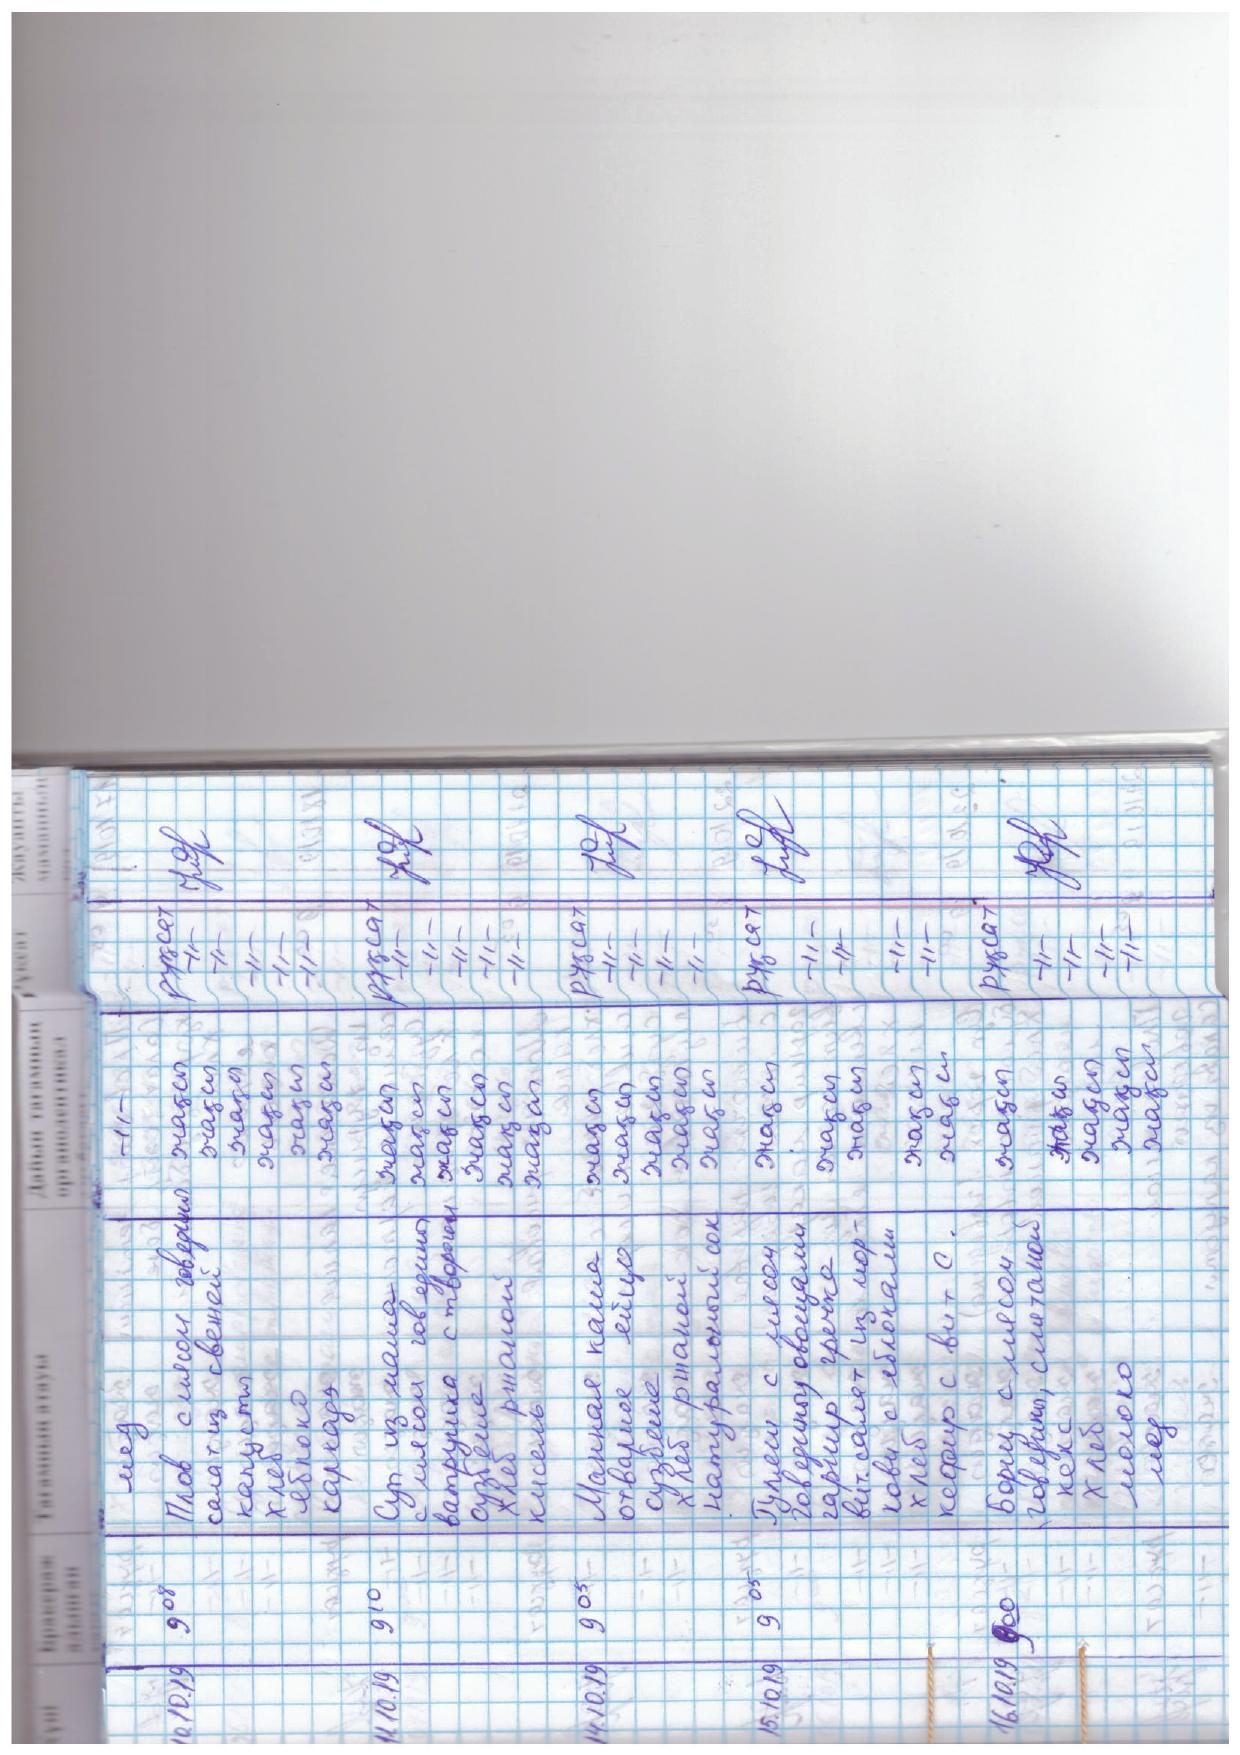 Бракераж алынған
Тағамның атауы
Дайын тағамның органолептикал
Рұқсат
Жауапты маманның
мед -//-
10.10.19 9 08 Плов с мясом говядины жақсы рұқсат
салат из свежей жақсы -//-
капусты жақсы -//-
хлеб жақсы -//-
яблоко жақсы -//-
каркадэ жақсы -//-
11.10.19 9 10 Суп из маша жақсы рұқсат
с мясом говядины жақсы -//-
ватрушка с творогом жақсы -//-
сузбеше жақсы -//-
хлеб ржаной жақсы -//-
кисель жақсы -//-
14.10.19 9 05 Манная каша жақсы рұқсат
отварное яйцо жақсы -//-
сузбеше жақсы -//-
хлеб ржаной жақсы -//-
натуральный сок жақсы -//-
15.10.19 9 05 Гуляш с мясом жақсы рұқсат
говядины овощами
гарнир гречка жақсы -//-
вит салат из мор- жақсы -//-
кови с яблоками
хлеб жақсы -//-
кефир с вит С. жақсы -//-
16.10.19 9 00 Борщ с мясом жақсы рұқсат
говядины, сметаной
кекс жақсы -//-
хлеб жақсы -//-
молоко жақсы -//-
мед жақсы -//-